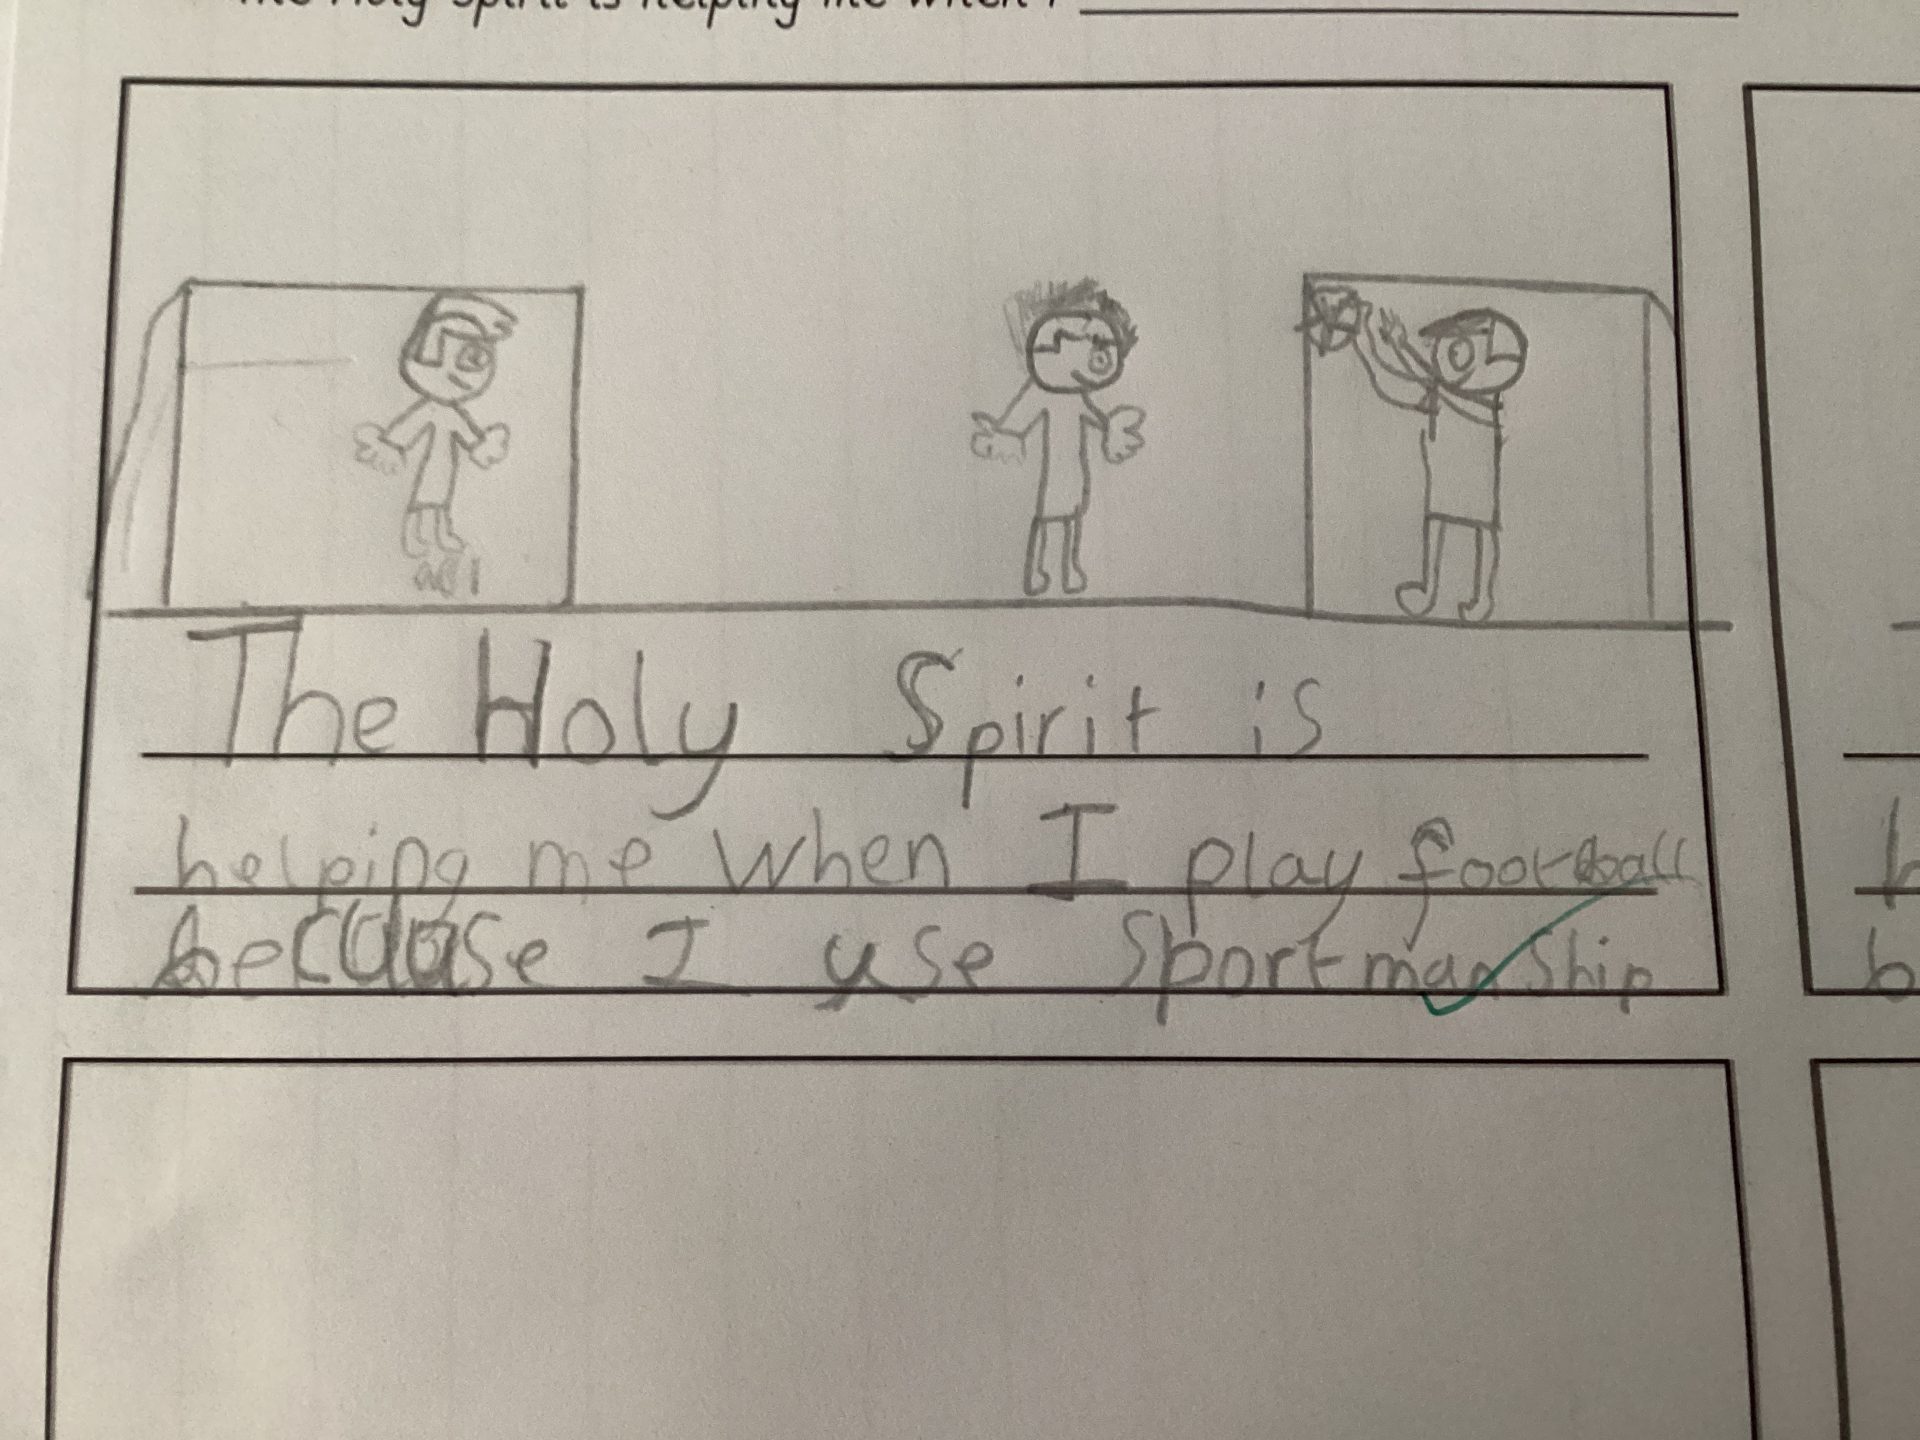 The Holy Spirit is helping me when I
The Holy Spirit is
helping me when I play football
because I use Sportmanship
h
b